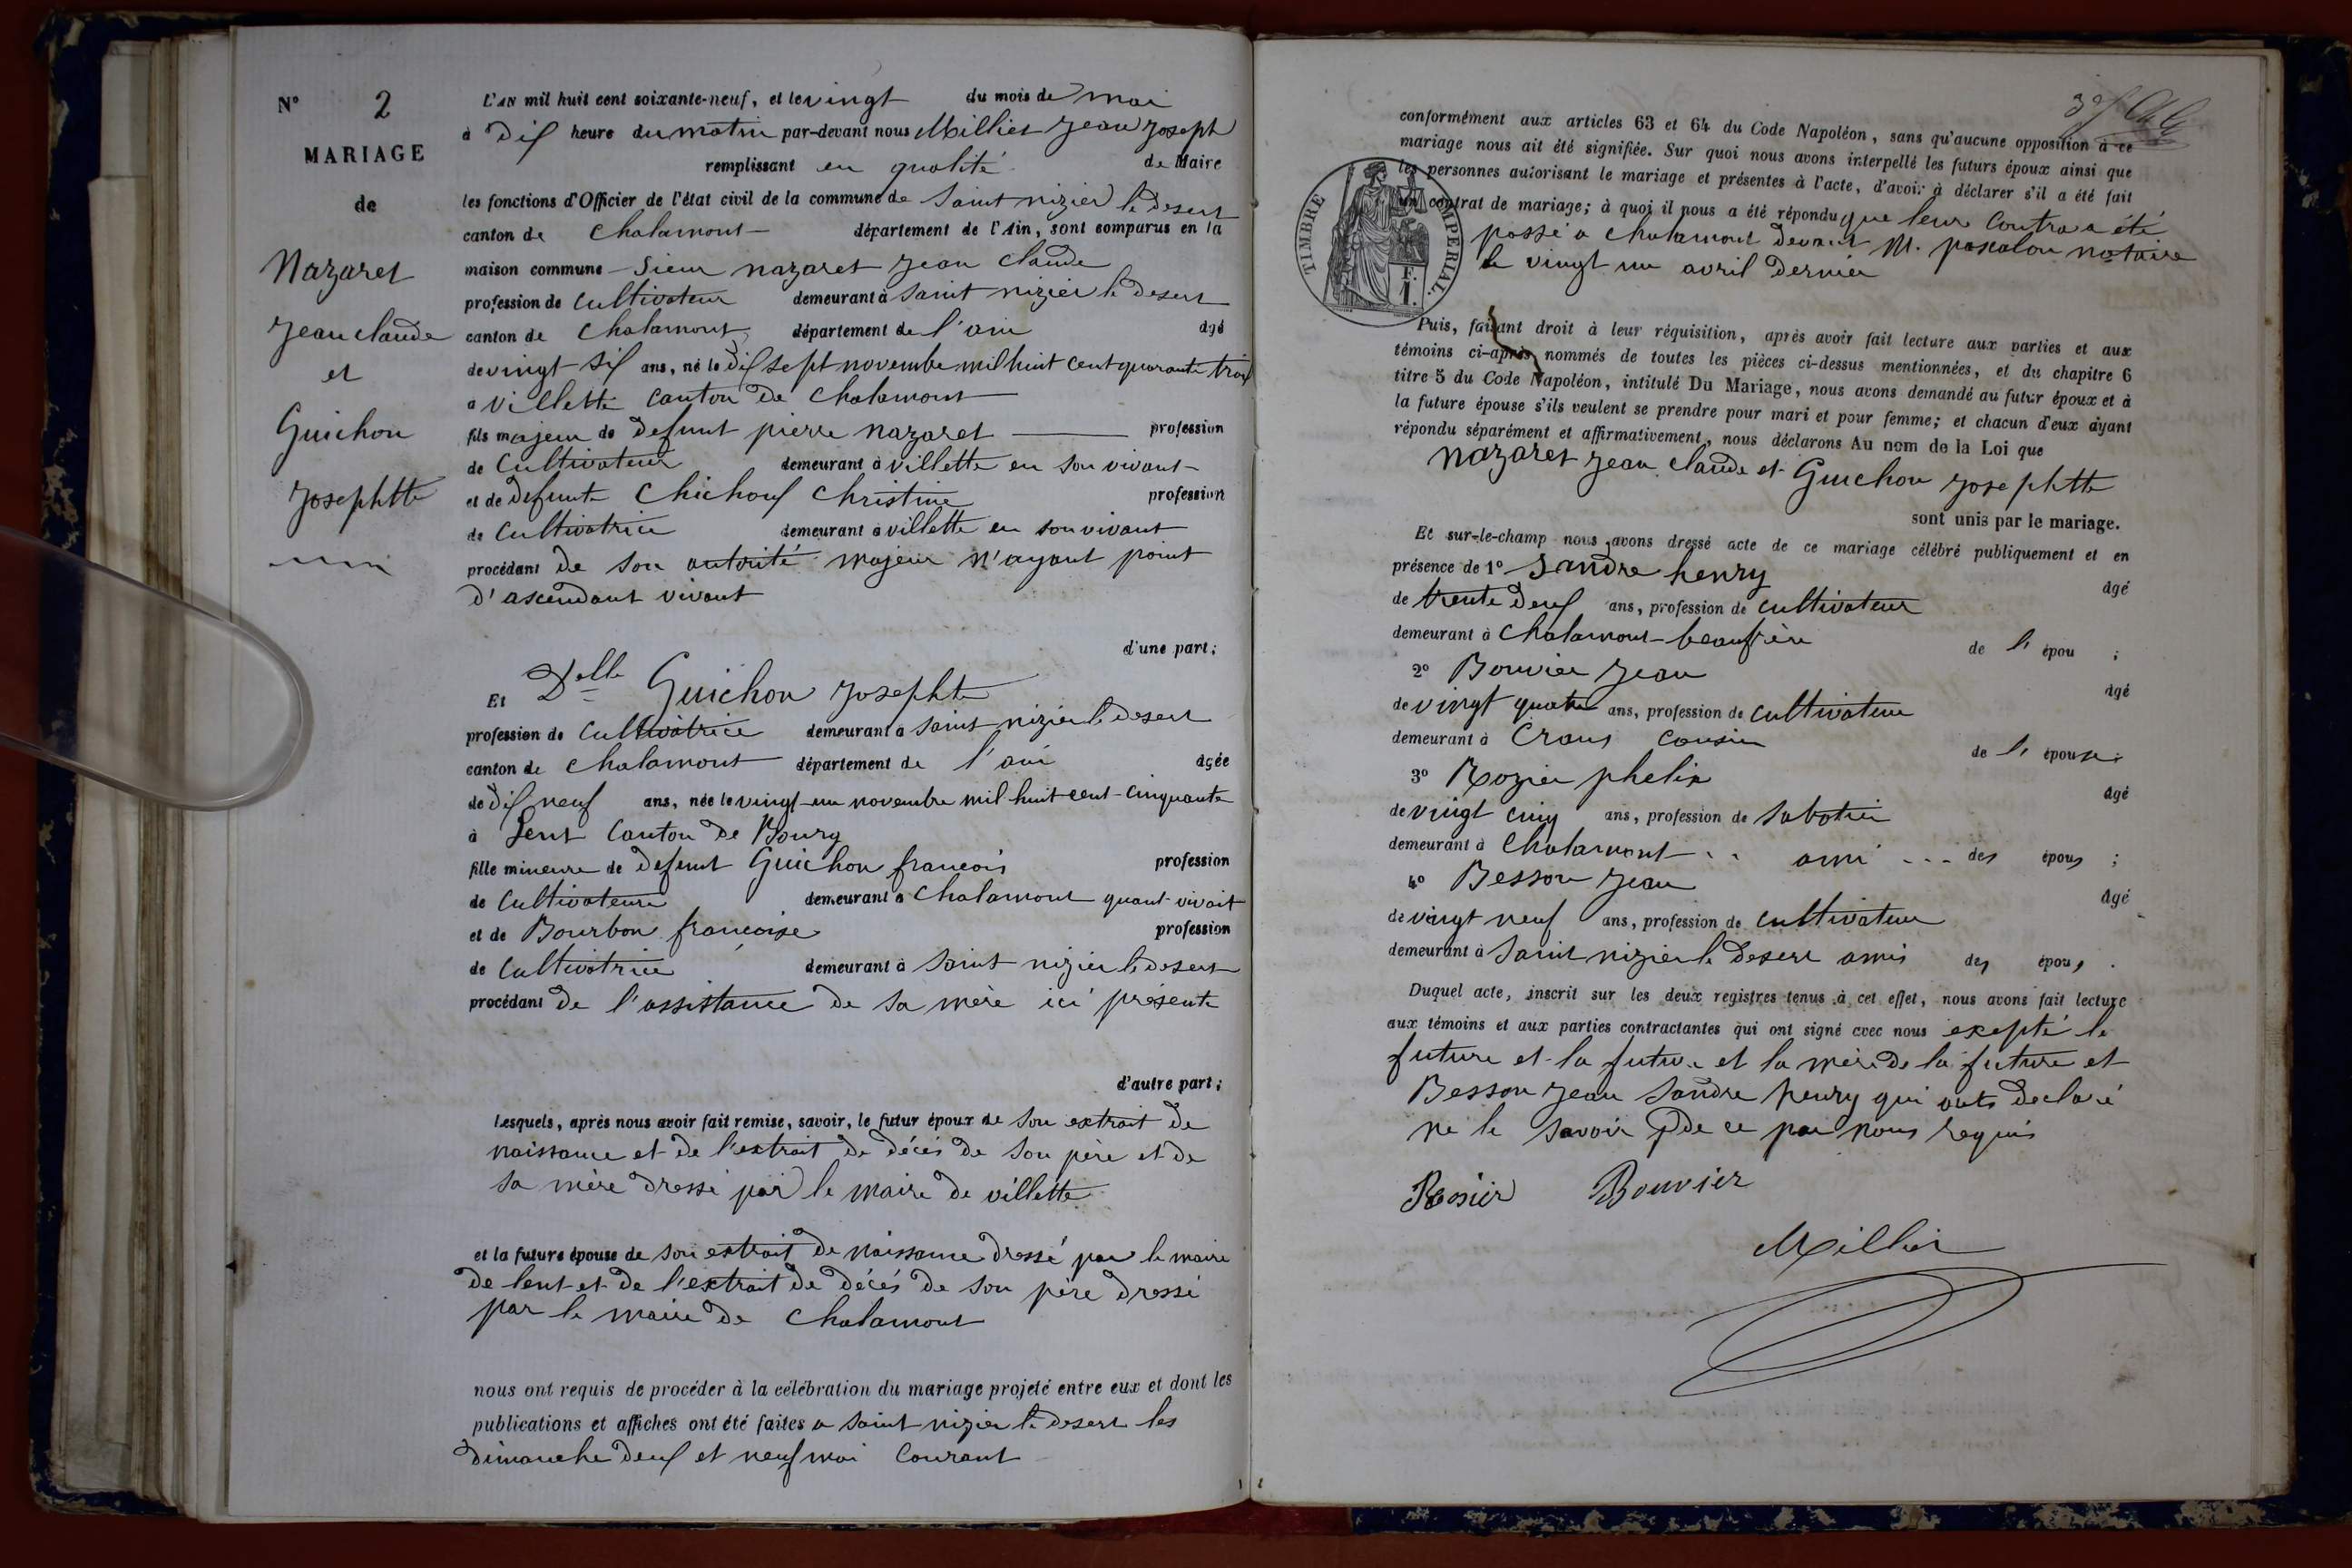 N° 2
MARIAGE
de
Nazaret
Jean claude
et
Guichon
Josephtte
L'AN mil huit cent soixante-neuf, et le vingt du mois de mai
à dix heure du matin par-devant nous Millier Jean Joseph
remplissant en qualité de Maire
les fonctions d'Officier de l'état civil de la commune de Saint nizier le desert
canton de Chalamont département de l'Ain, sont comparus en la
maison commune Sieur nazaret Jean Claude
profession de Cultivateur demeurant à Saint nizier le desert
canton de Chalamont département de l'ain âgé
de vingt six ans, né le dix sept novembre mil huit cent quarante trois
a villette canton de Chalamont
fils majeur de defunt pierre nazaret profession
de Cultivateur demeurant à villette en son vivant
et de defunte Chichoux Christine profession
de Cultivatrice demeurant à villette en son vivant
procédant de son autorité majeur n'ayant point
d'ascendant vivant
d'une part;
Et Delle Guichon Josephte
profession de Cultivatrice demeurant à Saint nizier le desert
canton de Chalamont département de l'ain âgée
de dix neuf ans, née le vingt un novembre mil huit cent cinquante
à Lent Canton de Bourg
fille mineure de defunt Guichon francois profession
de Cultivateur demeurant à Chalamont quant vivait
et de Bourbon francoise profession
de Cultivatrice demeurant à Saint nizier le desert
procédant de l'assistance de sa mère ici présente
d'autre part;
Lesquels, après nous avoir fait remise, savoir, le futur époux de son extrait de
naissance et de l'extrait de décés de son père et de
sa mère dressé par le maire de villette
et la future épouse de son extrait de naissance dressé par le maire
de lent et de l'extrait de décés de son père dressé
par le maire de Chalamont
nous ont requis de procéder à la célébration du mariage projeté entre eux et dont les
publications et affiches ont été faites a Saint nizier le desert les
dimanche deux et neuf mai Courant
conformément aux articles 63 et 64 du Code Napoléon, sans qu'aucune opposition à ce
mariage nous ait été signifiée. Sur quoi nous avons interpellé les futurs époux ainsi que
les personnes autorisant le mariage et présentes à l'acte, d'avoir à déclarer s'il a été fait
un contrat de mariage; à quoi il nous a été répondu que leur Contra a été
passé a Chalamont devant M. pascalon notaire
le vingt un avril dernier
TIMBRE IMPERIAL
F.
1.
Puis, faisant droit à leur réquisition, après avoir fait lecture aux parties et aux
témoins ci-après nommés de toutes les pièces ci-dessus mentionnées, et du chapitre 6
titre 5 du Code Napoléon, intitulé Du Mariage, nous avons demandé au futur époux et à
la future épouse s'ils veulent se prendre pour mari et pour femme; et chacun d'eux ayant
répondu séparément et affirmativement, nous déclarons Au nom de la Loi que
Nazaret Jean Claude et Guichon Josephtte
sont unis par le mariage.
Et sur-le-champ nous avons dressé acte de ce mariage célébré publiquement et en
présence de 1° Sandre henry âgé
de trente deux ans, profession de cultivateur
demeurant à Chalamont beaufrère de l' épou ;
2° Bouvier Jean âgé
de vingt quatre ans, profession de cultivateur
demeurant à Crans cousin de l' épouse;
3° Rozier phelix âgé
de vingt cinq ans, profession de Sabotier
demeurant à Chalamont ami des épous ;
4° Besson Jean âgé
de vingt neuf ans, profession de cultivateur
demeurant à Saint nizier le desert amis des épous .
Duquel acte, inscrit sur les deux registres tenus à cet effet, nous avons fait lecture
aux témoins et aux parties contractantes qui ont signé avec nous exepté le
future et la future et la mère de la future et
Besson Jean Sandre henry qui onts declaré
ne le savoir de ce par nous requis
Rosier Bouvier
Millier